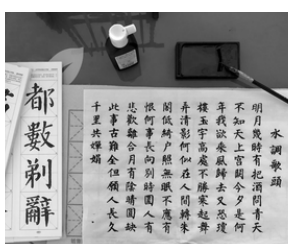 水調歌頭
明月幾時有把酒問青天
不知天上宮闕今夕是何
年我欲乘風歸去又恐瓊
樓玉宇高處不勝寒起舞
弄清影何似在人間轉朱
閣低綺户照無眠不應有
恨何事長向別時圓人有
悲歡離合月有陰晴圓缺
此事古難全但願人長久
千里共嬋娟
都數剃辭